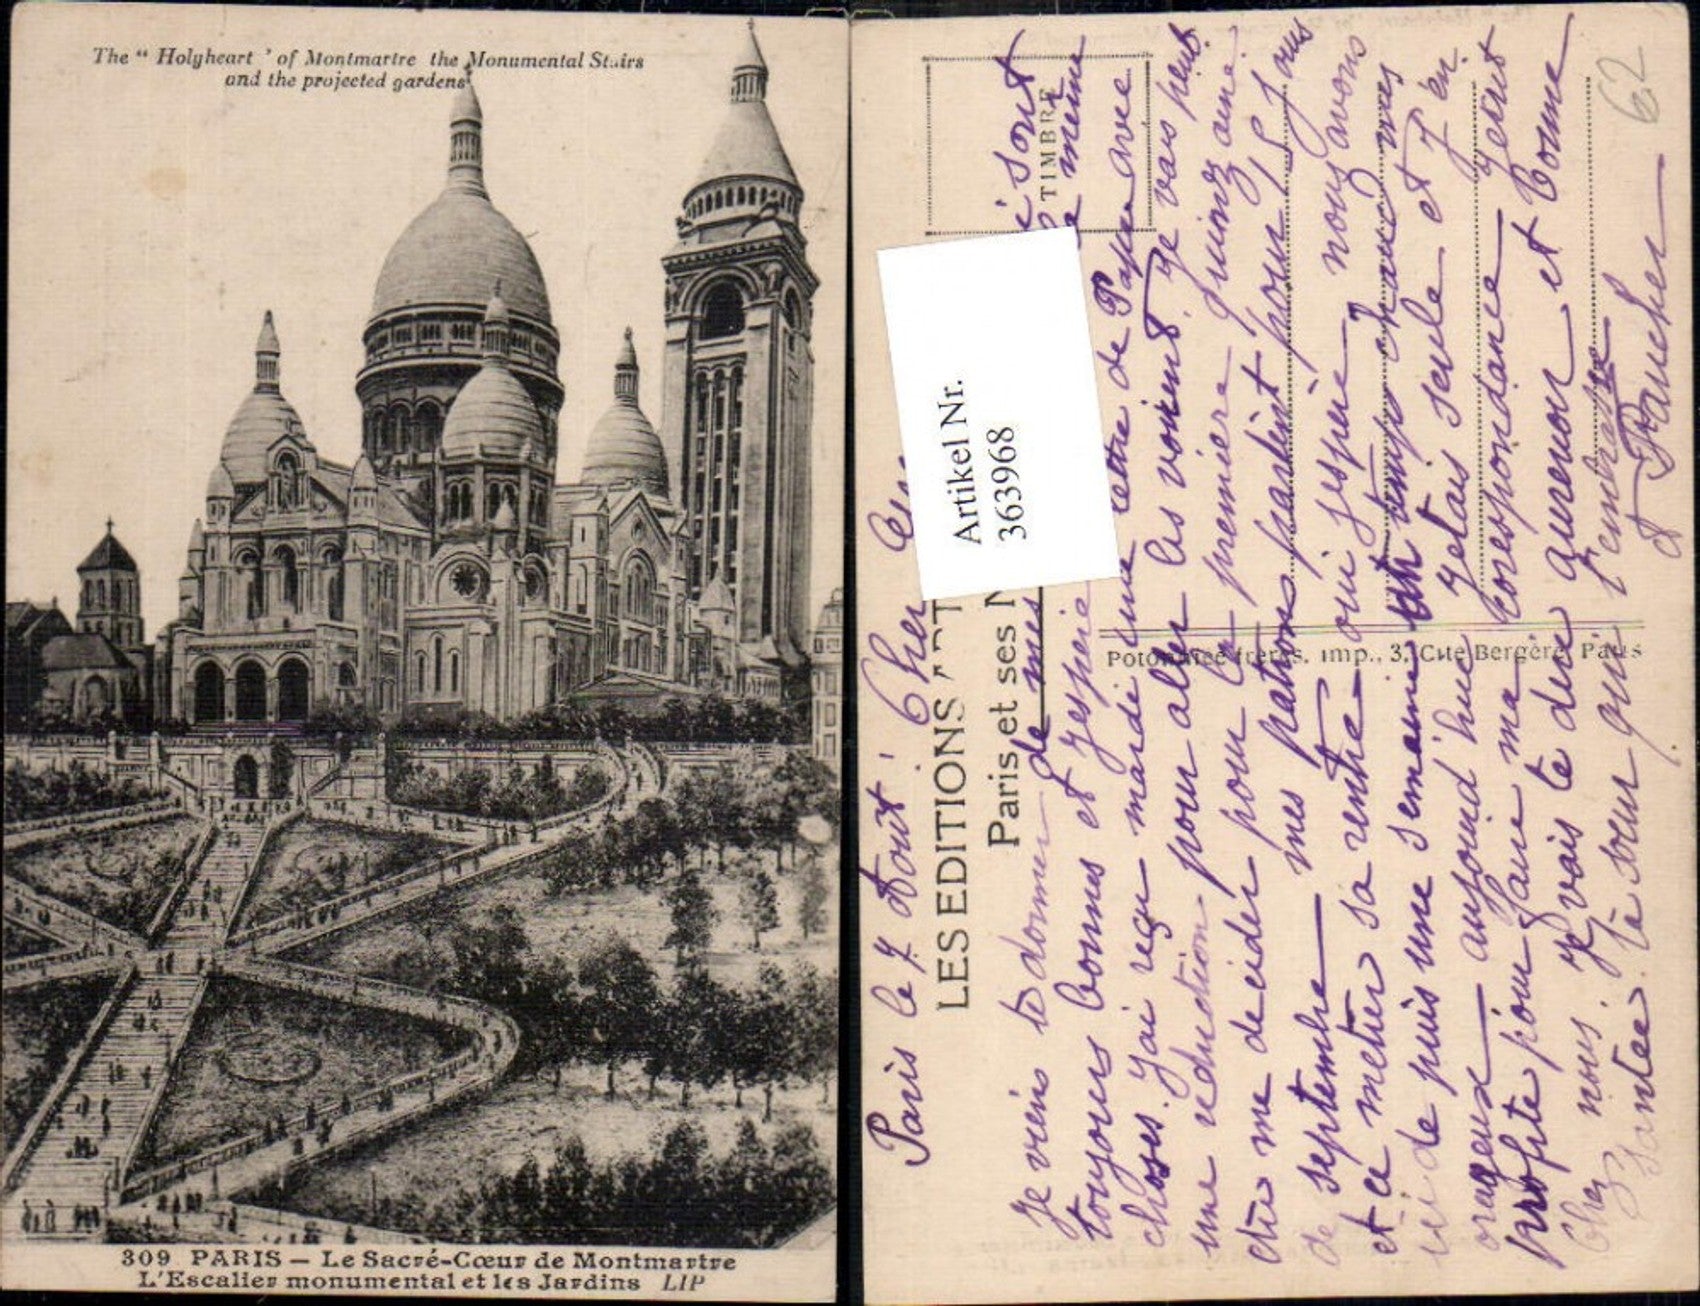 The " Holyheart ' of Montmartre the Monumental Stairs
and the projected gardens
309 PARIS — Le Sacré-Cœur de Montmartre
L'Escalier monumental et les Jardins LIP
TIMBRE
Artikel Nr.
363968
LES EDITIONS ART
Paris et ses
Potonniée frères, imp., 3, Cité Bergère, Paris
62
Paris le 7 Aout Cher
Je viens te donner de mes
toujours bonnes et jespere la meme
choses. j'ai reçu mardi une lettre de Papa avec
une reduction pour aller les voir. je vais peut
etre me decider pour la premiere quinzaine
de septembre mes patrons partent pour 15 jours
et ce metier sa rentre oui jespere nous avons
ici de puis une semaine un temps chaud mes
orageux aujourd hui jetais seule et j'en
profite pour faire ma correspondance
chez nous. je vais te dire aurevoir et bonne
santée. ta sœur qui t'embrasse
Faucher